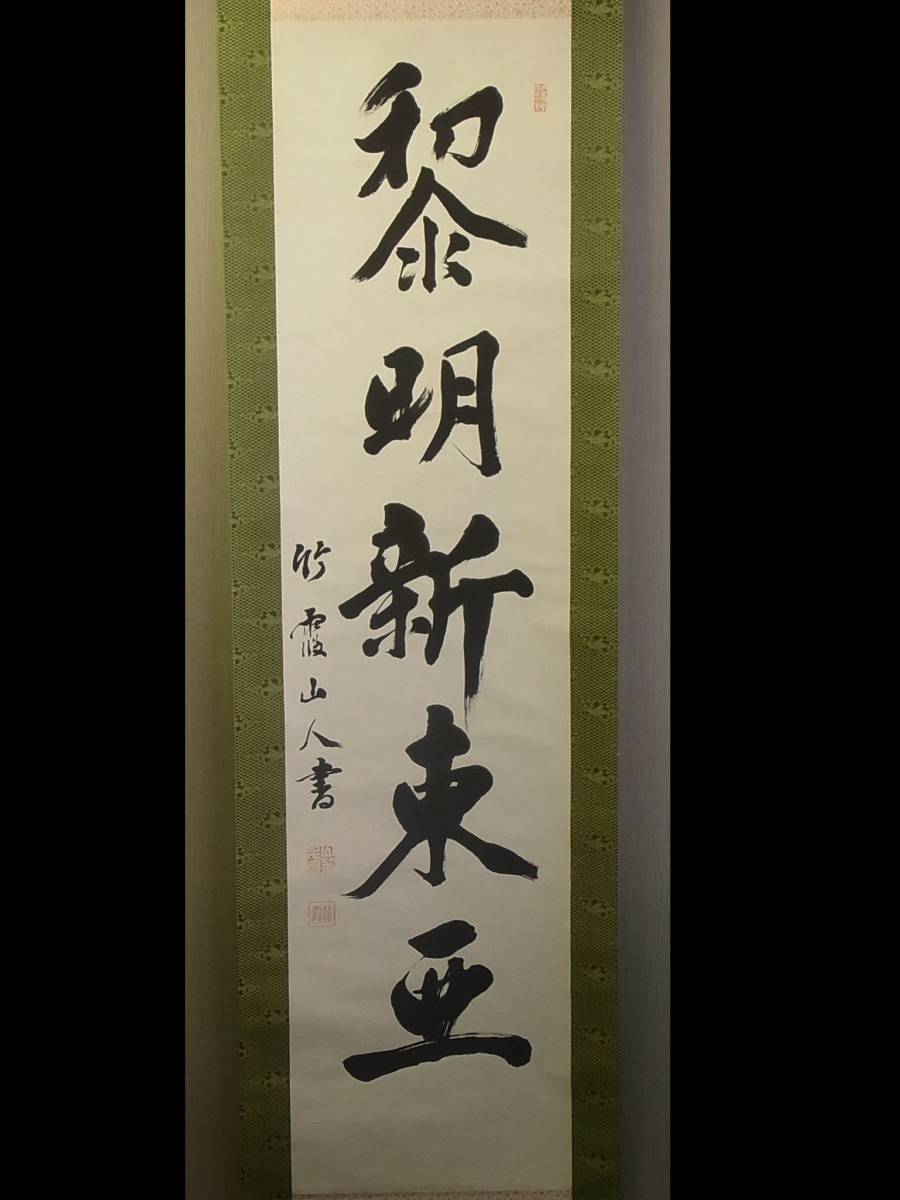 黎明新東亜
竹霞山人書